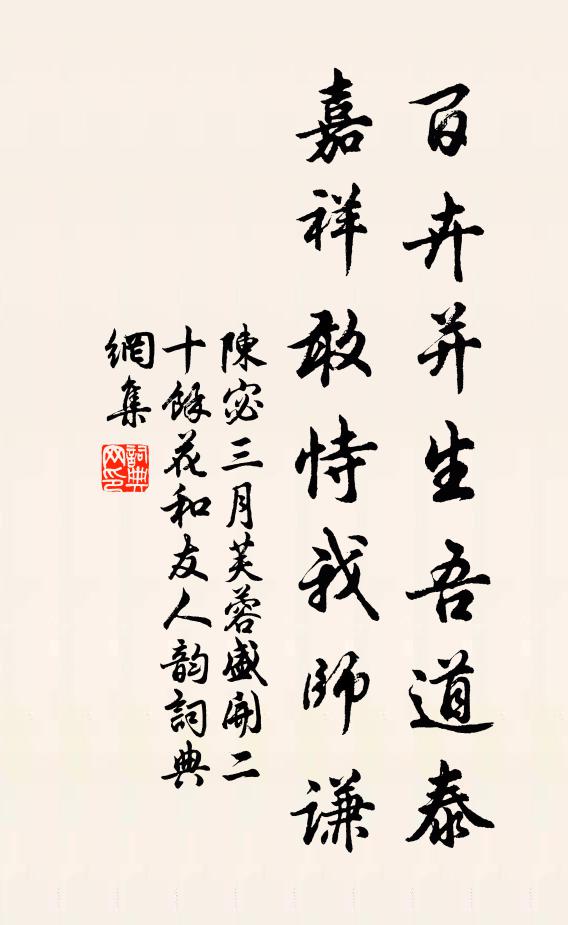 百卉并生吾道泰
嘉祥敢恃我師謙
陳宓三月芙蓉盛開二
十餘花和友人韵詞典
網集
詞典
网印